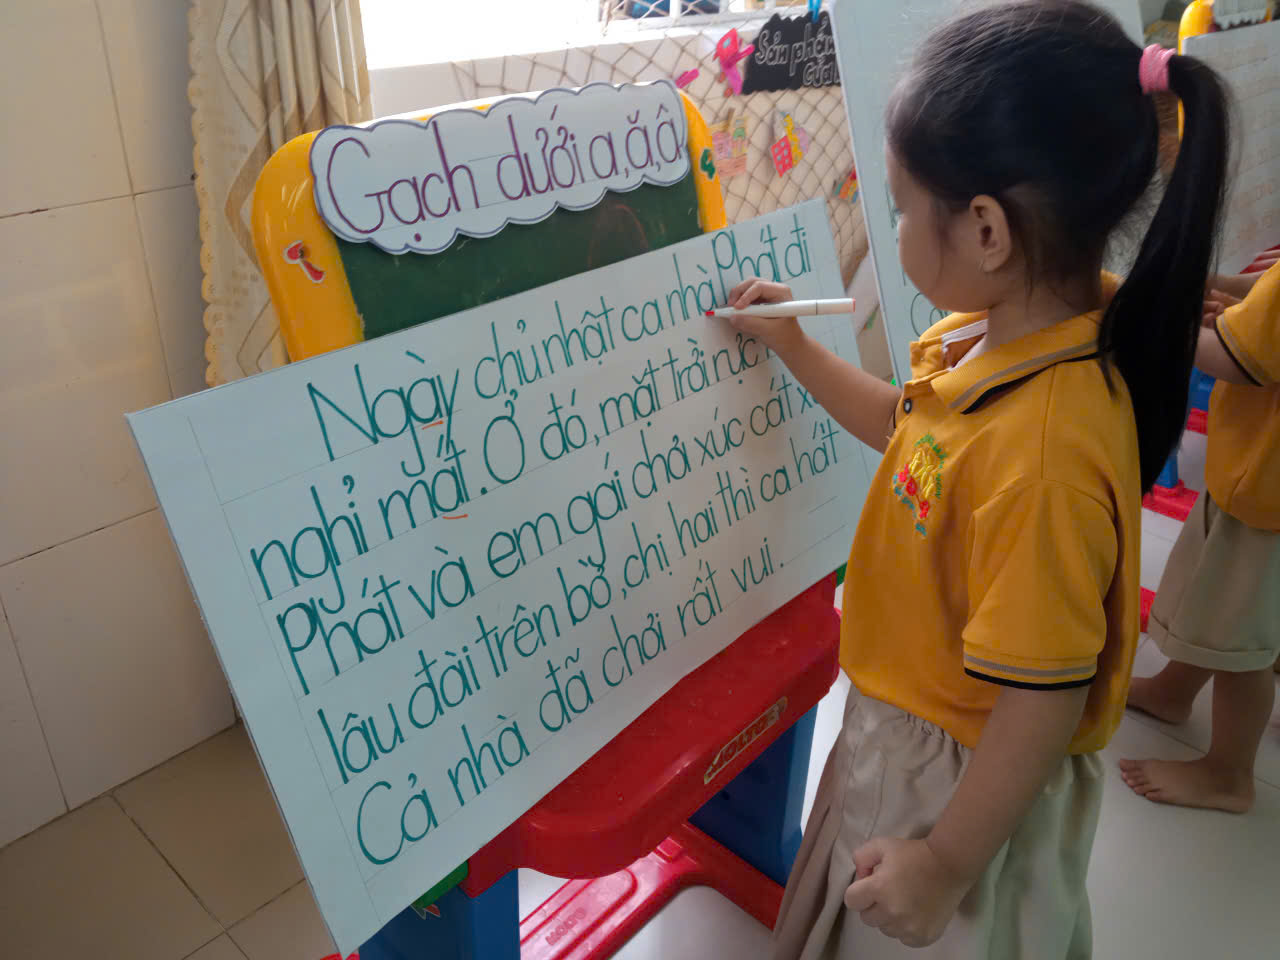 Gạch dưới a, ă, â
Sản phẩm
Của
Ngày chủ nhật ca nhà Phát đi
nghỉ mất. Ở đó, mặt trời rực
Phát và em gái chơi xúc cát
lâu đài trên bờ, chị hai thì ca hát
Cả nhà đã chơi rất vui.